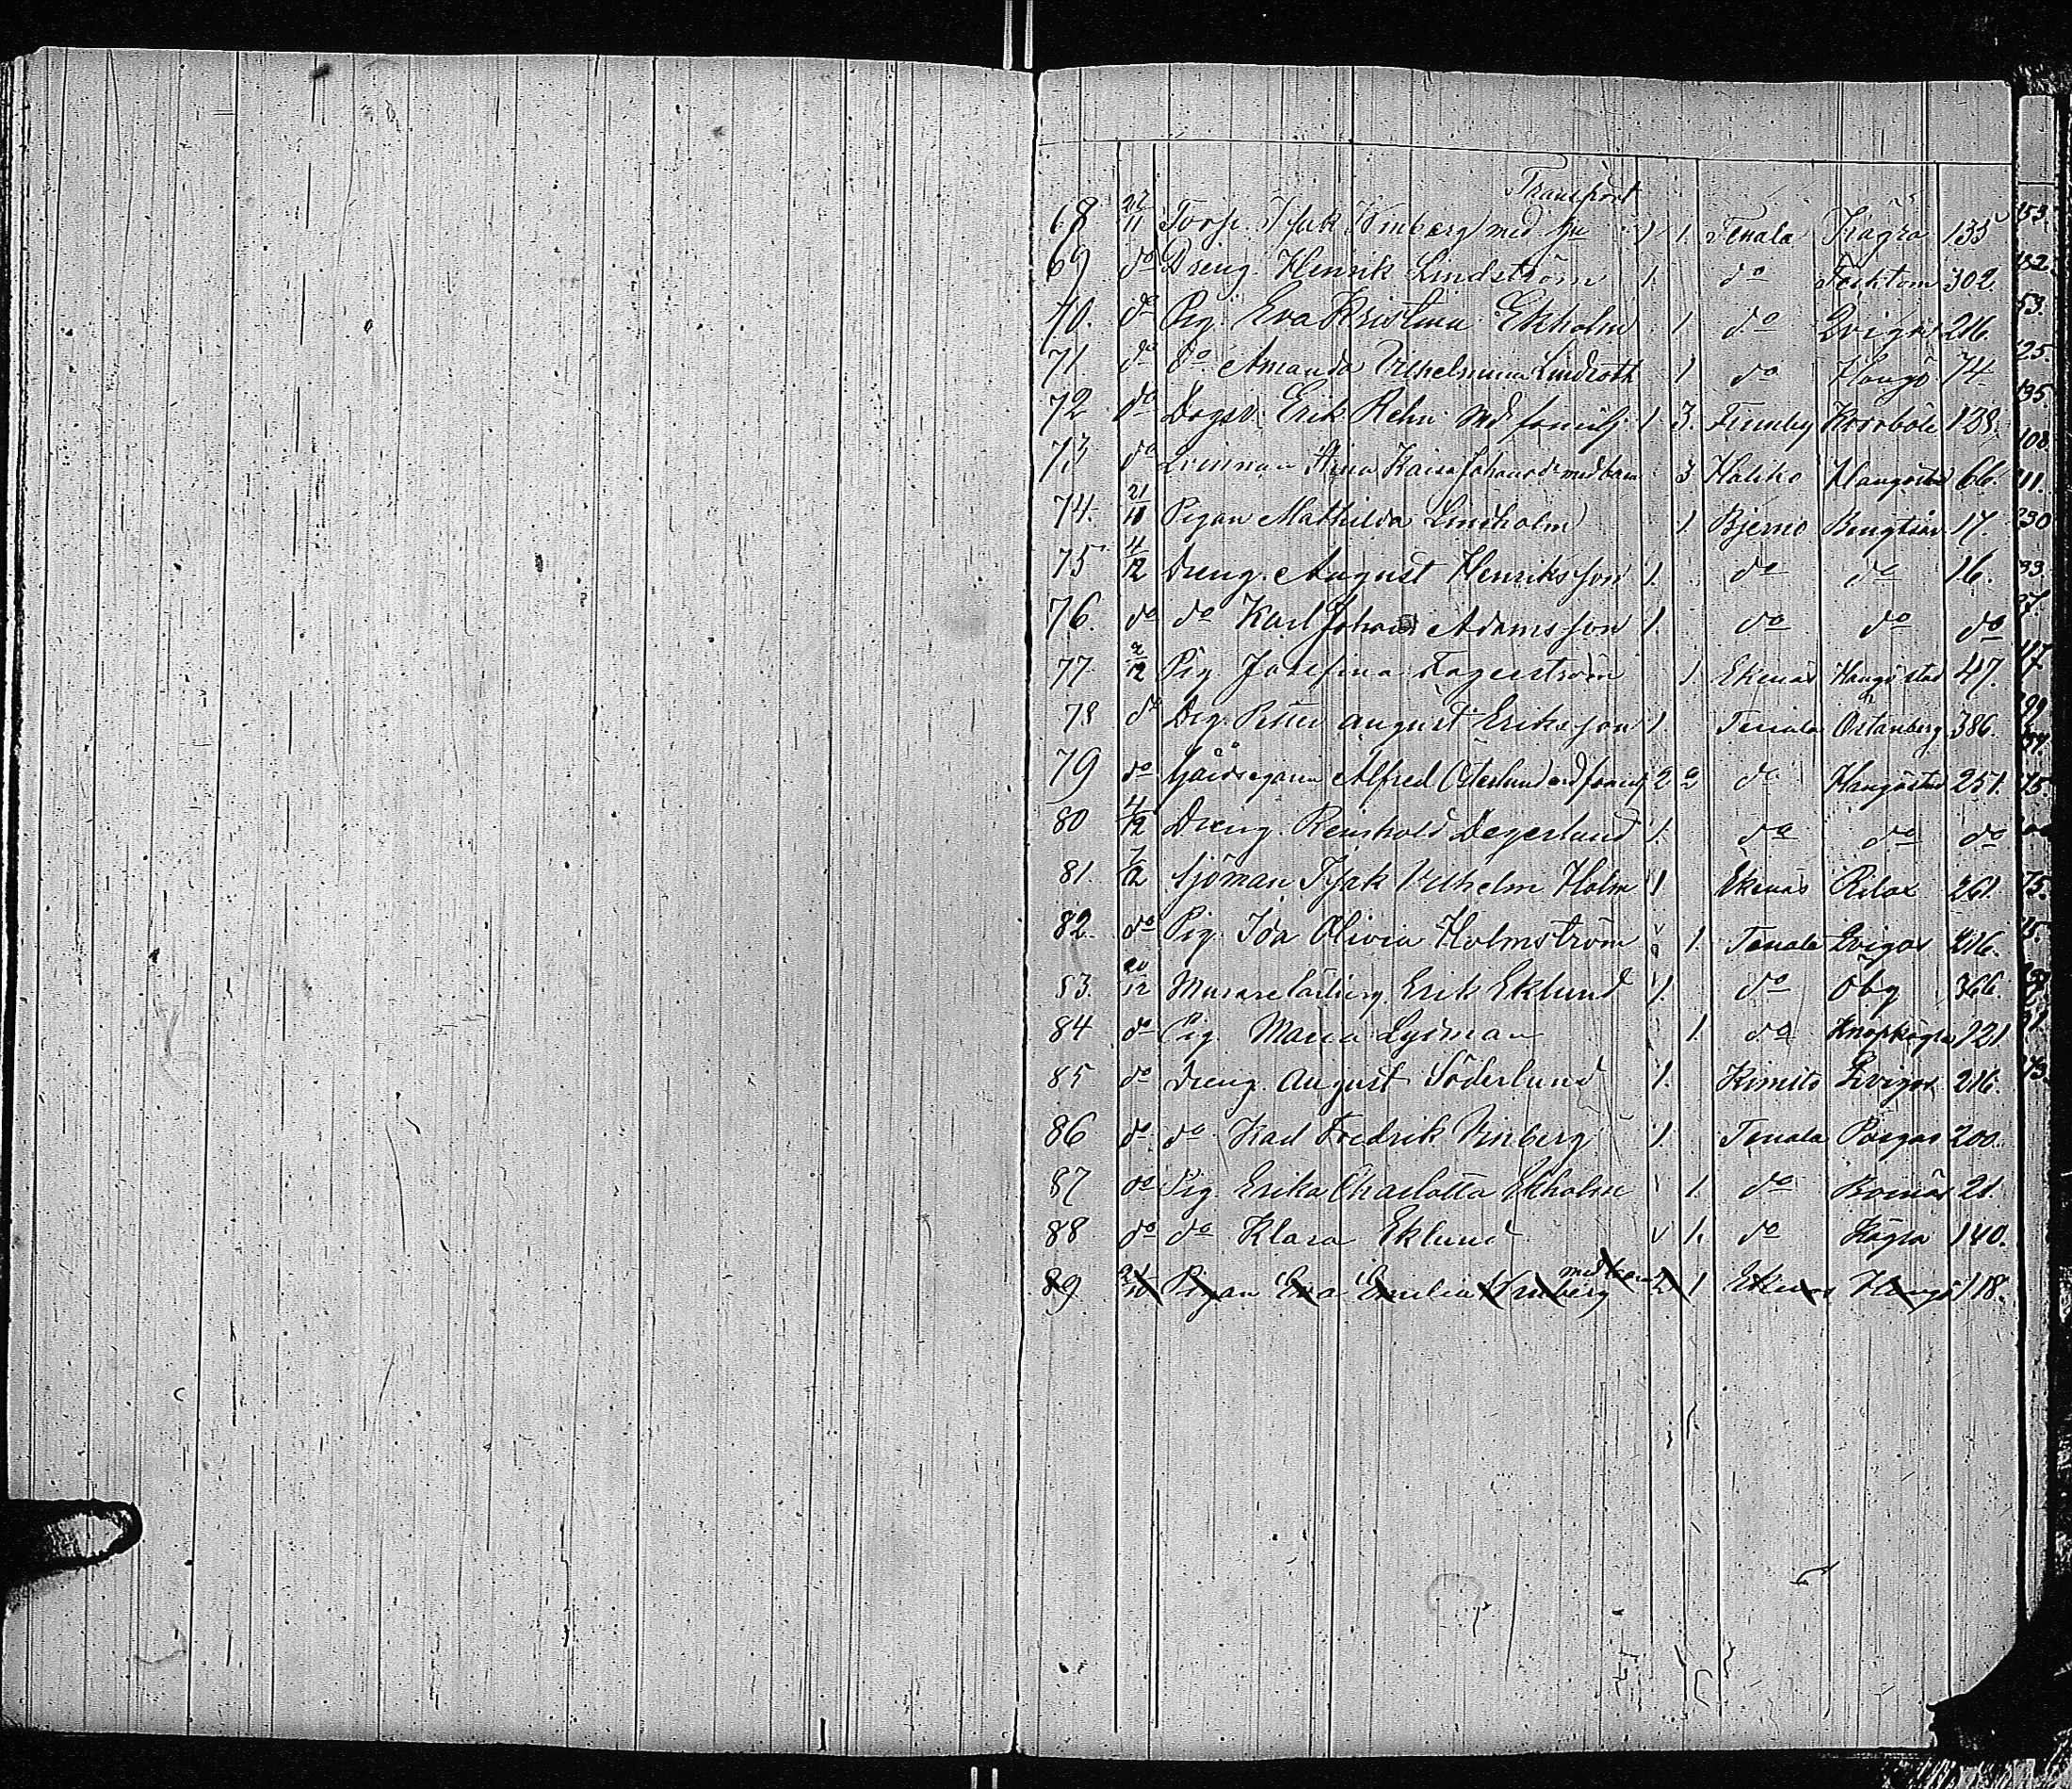 Transport
68 27/11 Torp. Isak Vinberg med hu 1 1. Tenala Kågra 135
69 do Dreng. Henrik Lindström 1. do 302
70. do Pig. Eva Kristina Ekholm 1 do Qvigos 216.
71. do do Amanda Vilhelmina Lindroth 1 do Hangö 74.
72 do Dagsv. Erik Rehn med familj 1 3. Finnby 138.
73 do Qvinnan Kaisa Johansdr med barn 3 Haliko Hangöstad 66.
74. 21/10 Pigan Mathilda Lindholm 1 Bjerno Bengtsår 17.
75. 4/12 Dreng. August Henriksson 1. do do 16.
76. do do Karl Johan Adamsson 1. do do do
77. 2/12 Pig. Josefina Fagerström 1. Ekenäs Hangöstad 47.
78 do Drg. Petter August Eriksson 1 Tenala Östanberg 386.
79 do Gårdsegaren Alfred Österlund med familj 2 2 do Hangöstad 251.
80 4/12 Dreng. Reinhold Degerlund 1. do do do
81. 7/12 Sjöman Isak Vilhelm Holm 1 Ekenäs Rilax 261.
82. do Pig. Ida Olivia Holmström 1. Tenala Qvigos 216.
83. 20/12 Erik Eklund 1. do Öby 366.
84 do Pig. Maria Lydman 1. do 121
85 do Dreng. August Söderlund 1. Kimito Qvigos 216.
86 do do Karl Fredrik Vinberg 1. Tenala 200.
87 do Pig. Erika Charlotta Ekholm 1. do 21.
88 do do Klara Eklund 1. do Kågra 140.
89 Pigan Eva Emilia Vinberg med barn 2 1 Ekenäs Hangö 118.